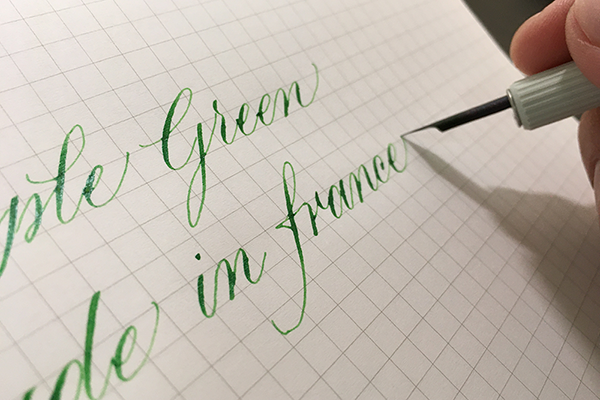 ple Green
ade in france